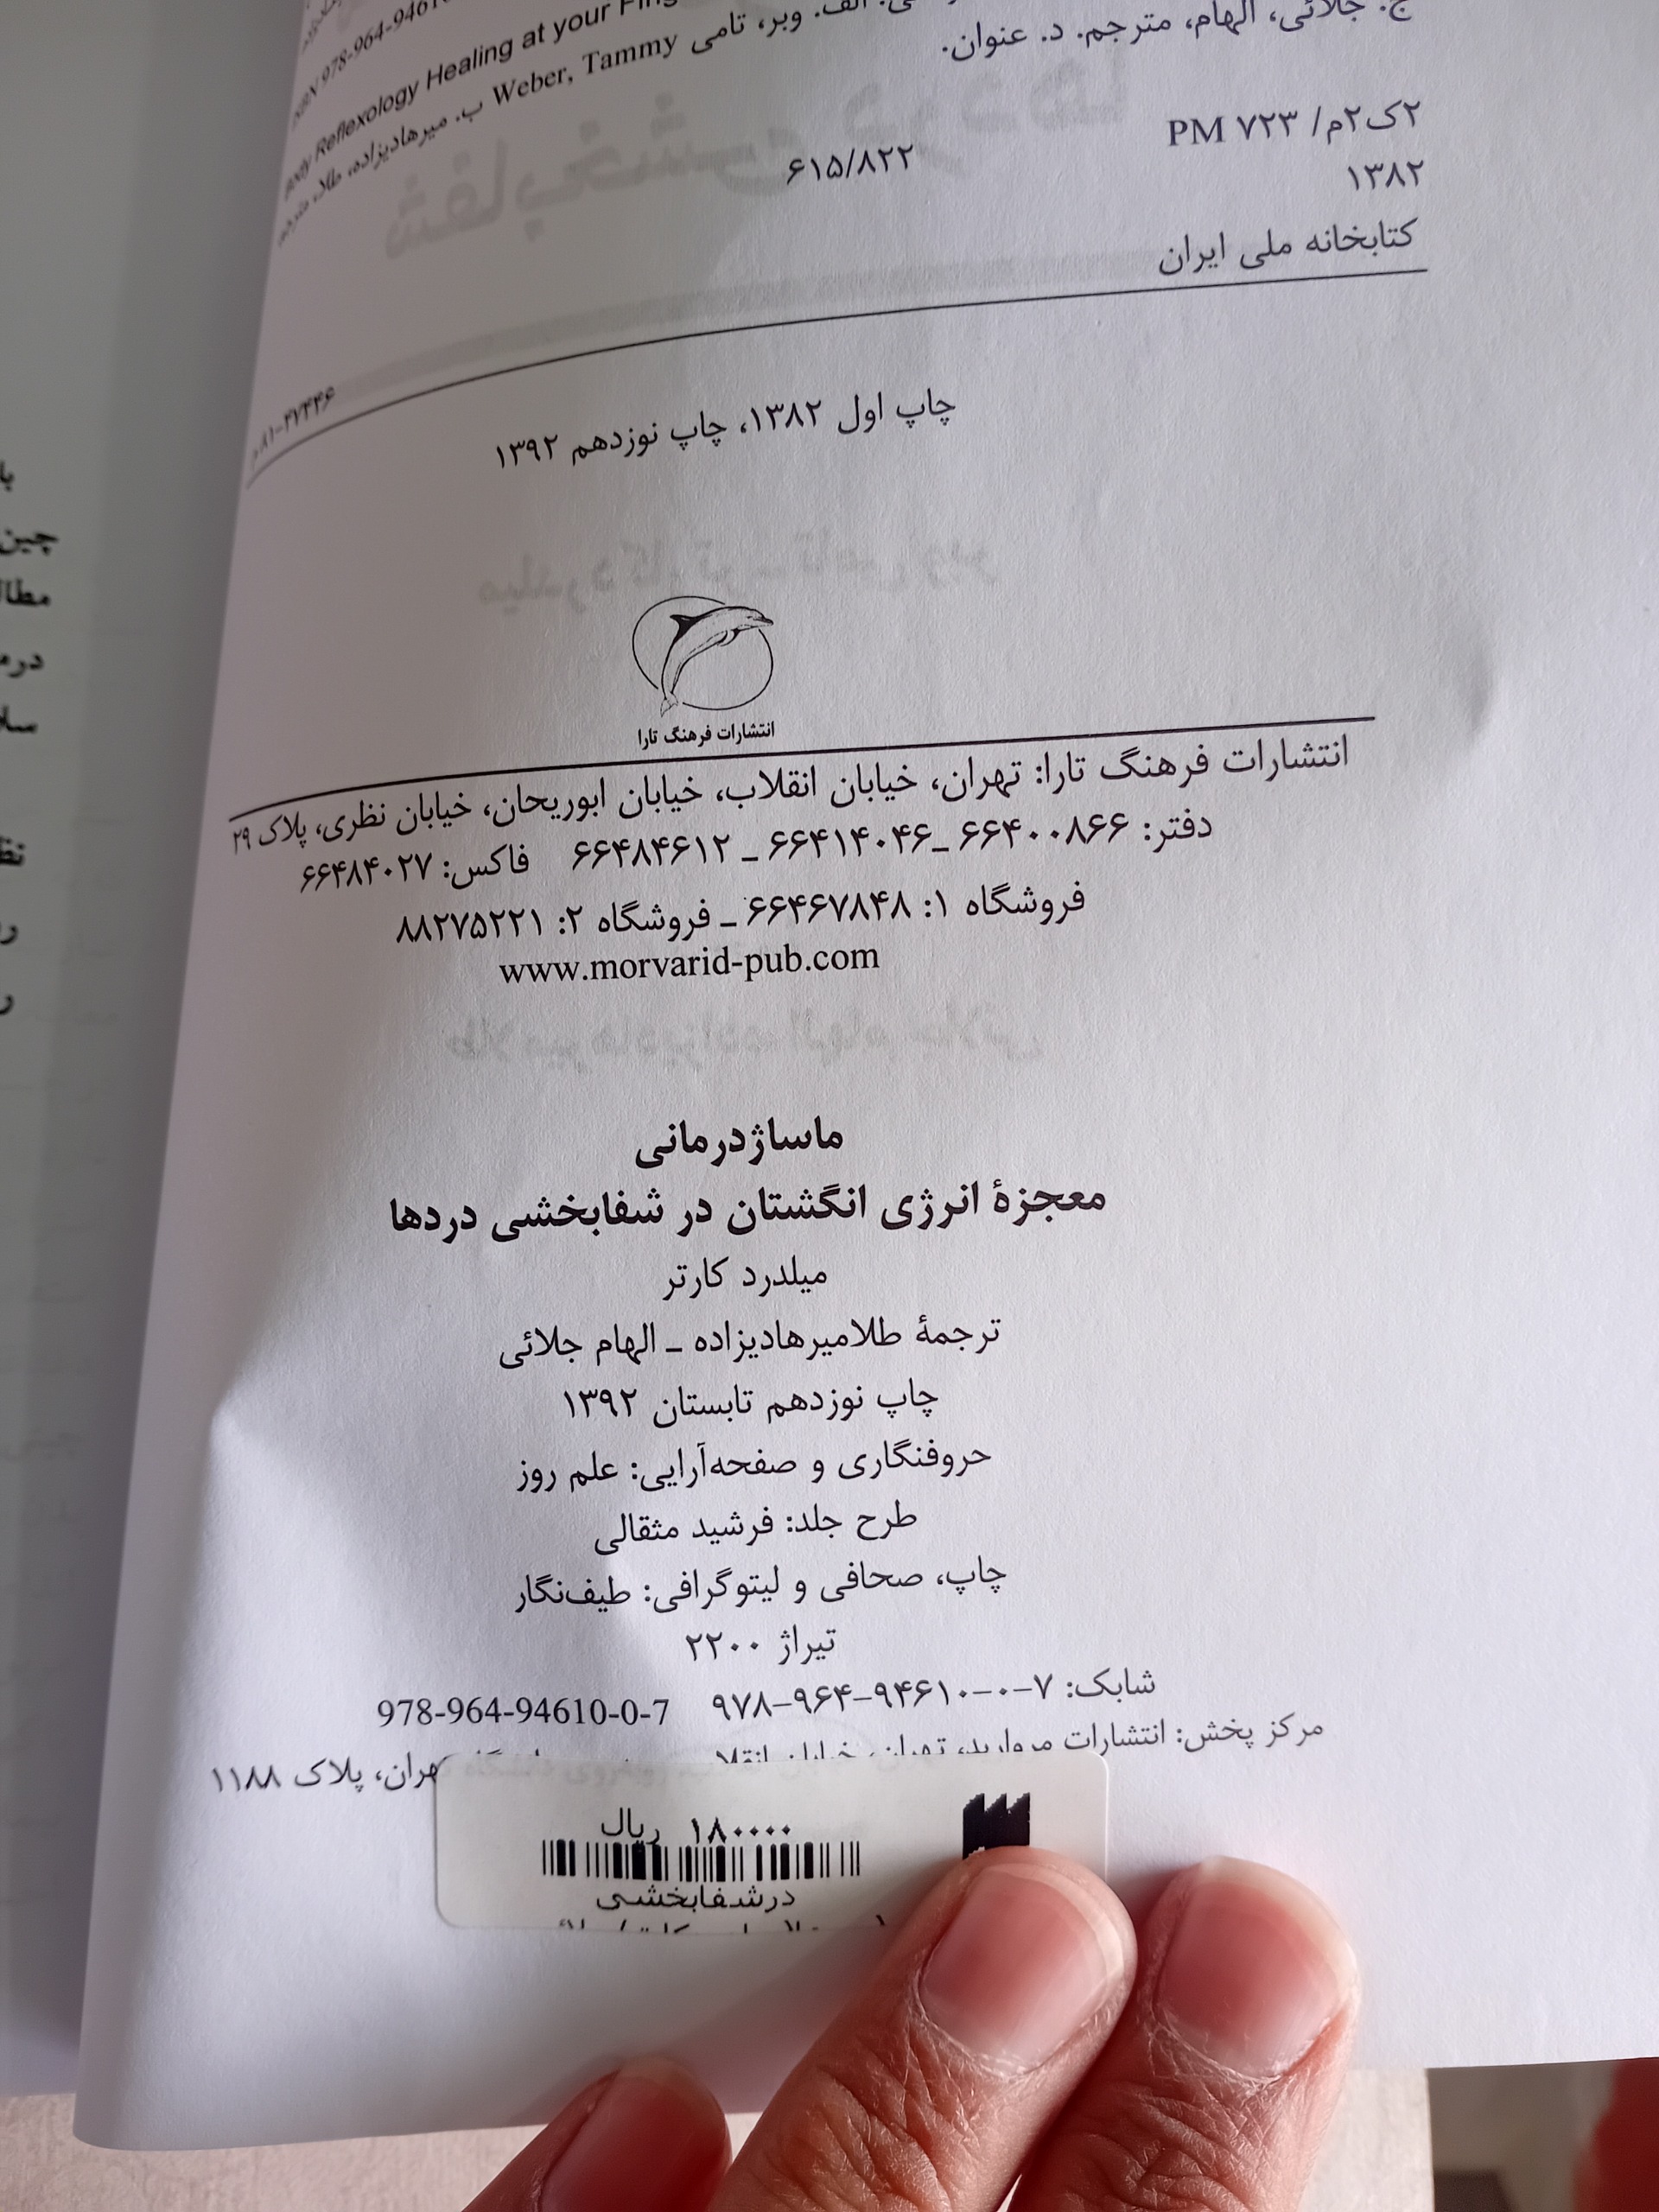 ISBN 978-964-9461
Body Reflexology Healing at your
الف. وبر، تامی Weber, Tammy ب. میرهادیزاده، طلا،
ج. جلائی، الهام، مترجم. د. عنوان.
۲ک۲م/ ۷۲۳ PM
۶۱۵/۸۲۲
۱۳۸۲
کتابخانه ملی ایران
۸۱-۴۷۴۴۶
چاپ اول ۱۳۸۲، چاپ نوزدهم ۱۳۹۲
انتشارات فرهنگ تارا
انتشارات فرهنگ تارا: تهران، خیابان انقلاب، خیابان ابوریحان، خیابان نظری، پلاک ۲۹
دفتر: ۶۶۴۰۰۸۶۶ ـ ۶۶۴۱۴۰۴۶ ـ ۶۶۴۸۴۶۱۲ فاکس: ۶۶۴۸۴۰۲۷
فروشگاه ۱: ۶۶۴۶۷۸۴۸ ـ فروشگاه ۲: ۸۸۲۷۵۲۲۱
www.morvarid-pub.com
ماساژدرمانی
معجزهٔ انرژی انگشتان در شفابخشی دردها
میلدرد کارتر
ترجمهٔ طلامیرهادیزاده ـ الهام جلائی
چاپ نوزدهم تابستان ۱۳۹۲
حروفنگاری و صفحه‌آرایی: علم روز
طرح جلد: فرشید مثقالی
چاپ، صحافی و لیتوگرافی: طیف‌نگار
تیراژ ۲۲۰۰
شابک: ۷-۰-۹۴۶۱۰-۹۶۴-۹۷۸ 978-964-94610-0-7
مرکز پخش: انتشارات مروارید، تهران، خیابان انقلاب تهران، پلاک ۱۱۸۸
۱۸۰۰۰۰ ریال
درشفابخشی
چین